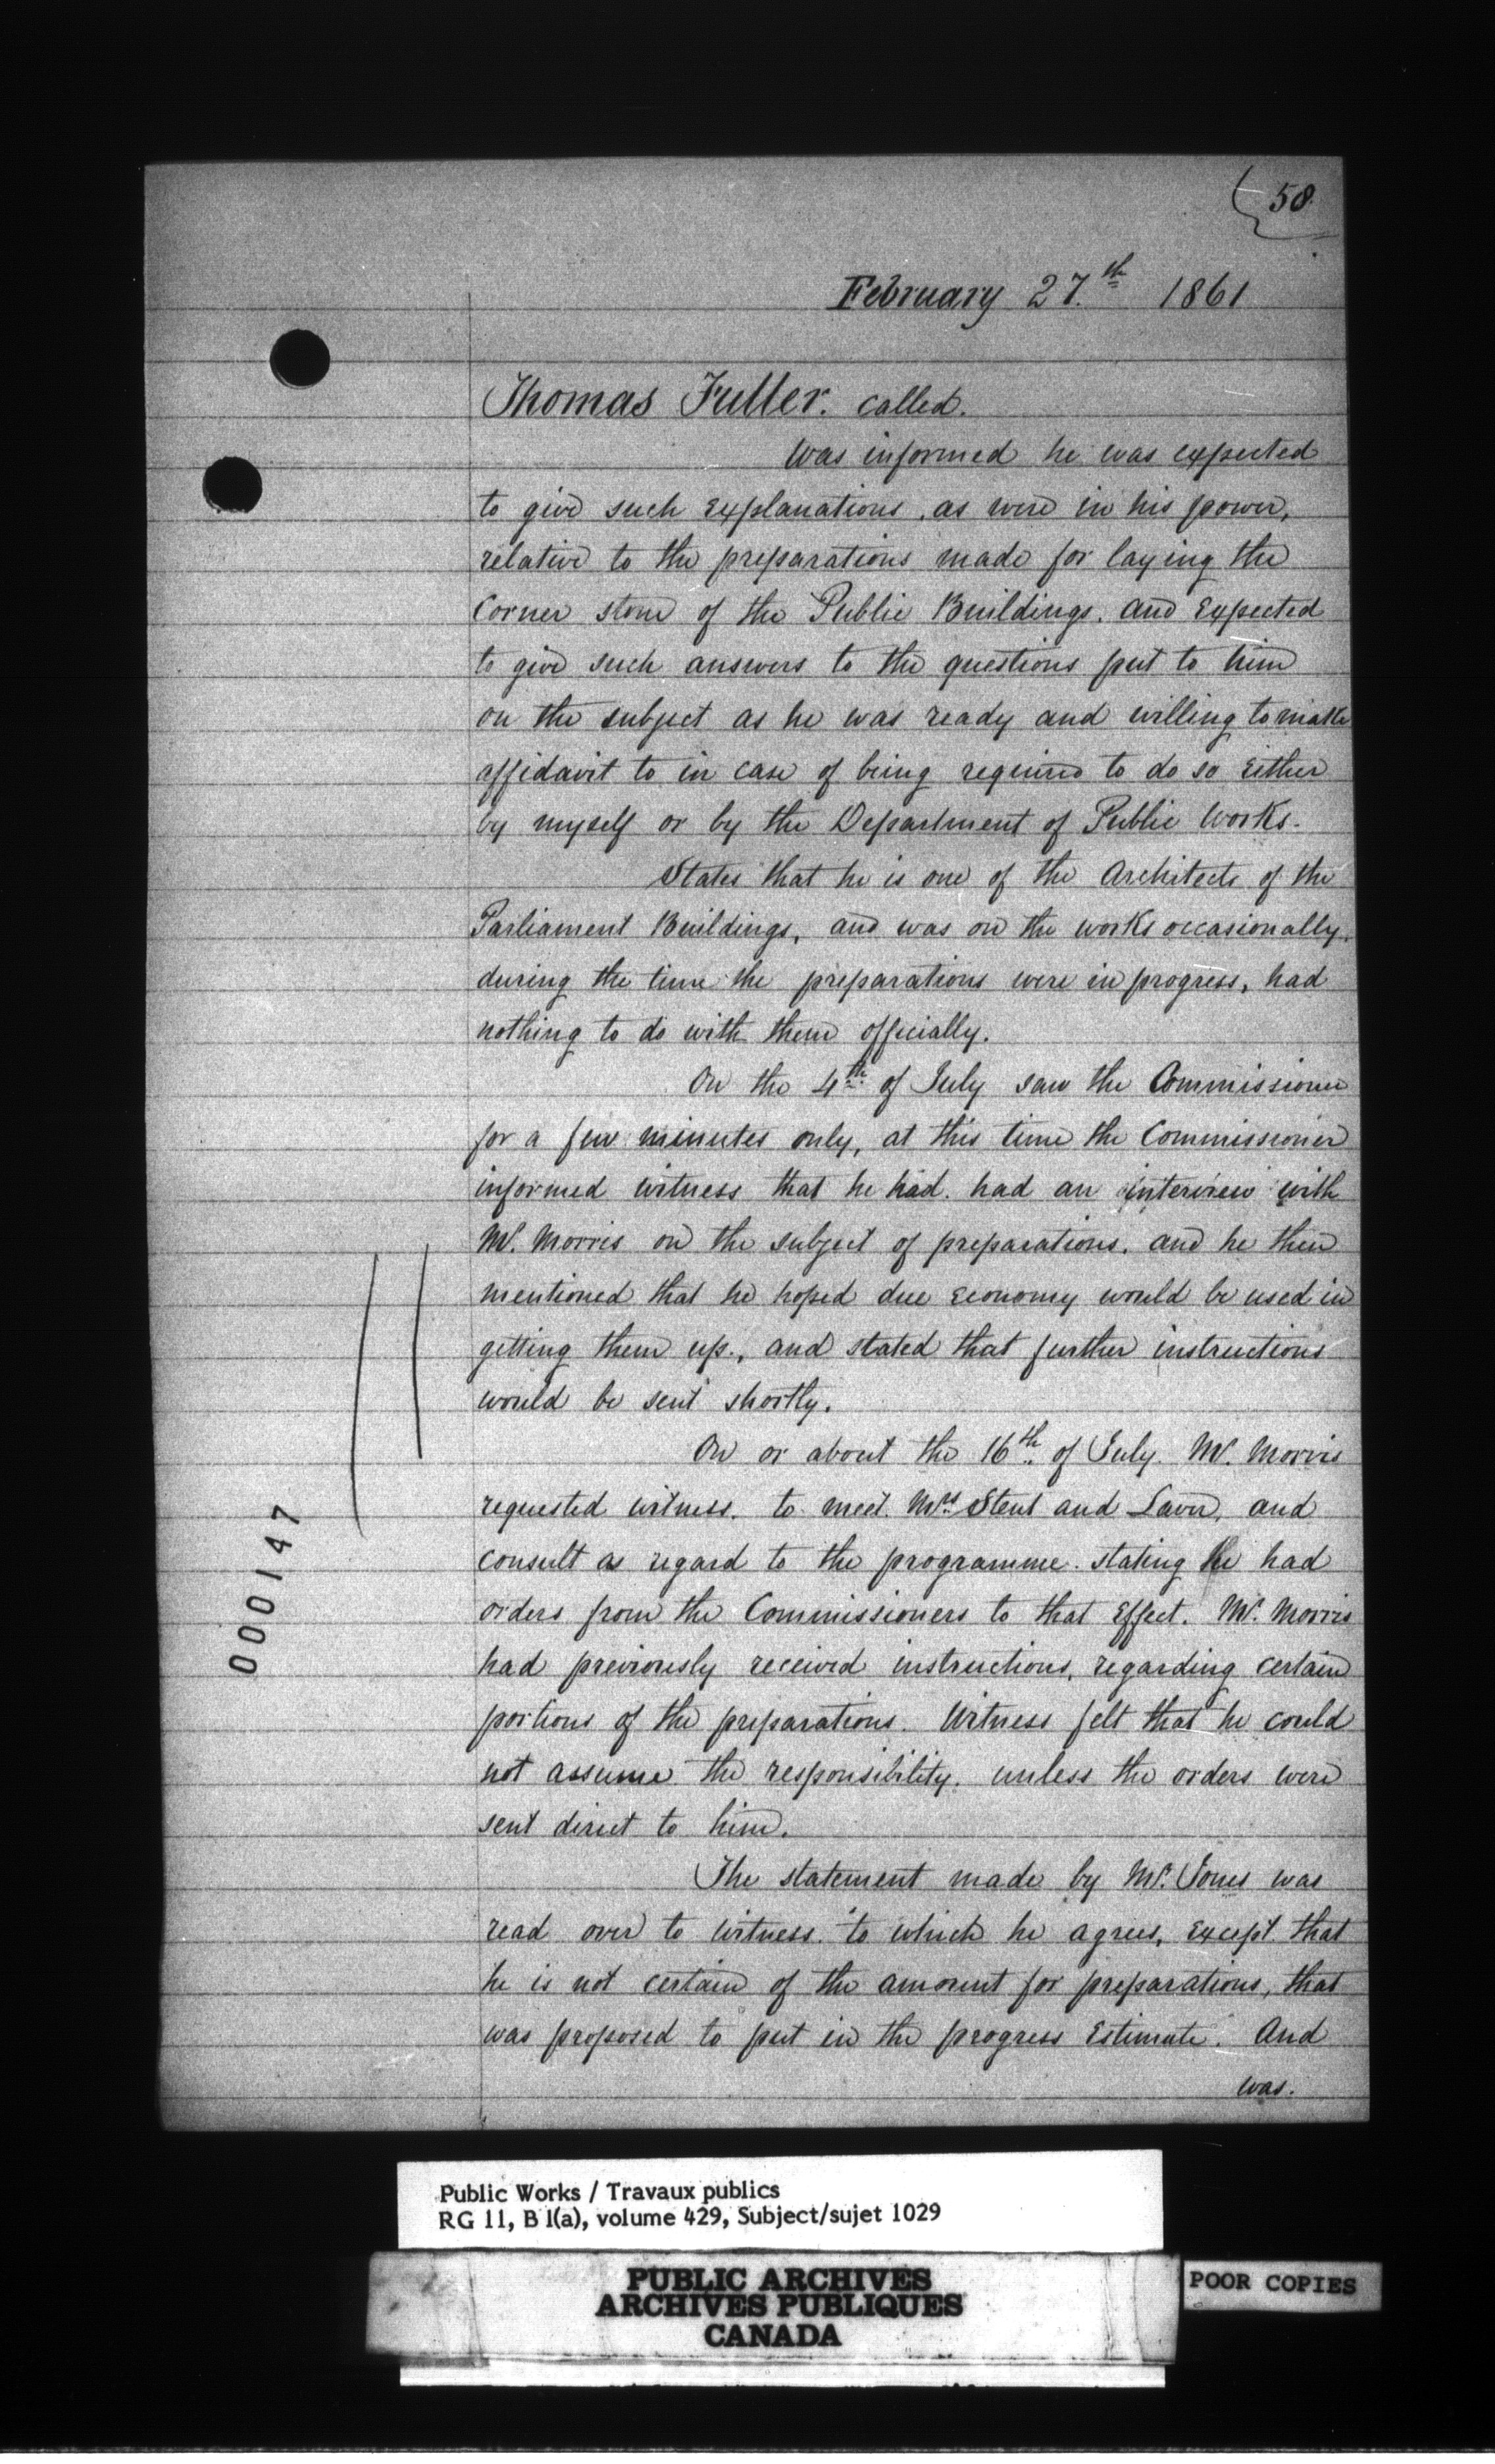 58
February 27.th 1861
Thomas Fuller. called.
Was informed he was expected
to give such explanations, as were in his power,
relative to the preparations made for laying the
Corner stone of the Public Buildings. and expected
to give such answers to the questions put to him
on the subject as he was ready and willing to make
affidavit to in case of being required to do so either
by myself or by the Department of Public Works.
States that he is one of the Architects of the
Parliament Buildings, and was on the works occasionally,
during the time the preparations were in progress, had
nothing to do with them officially.
On the 4th of July saw the Commissioner
for a few minutes only, at this time the Commissioner
informed witness that he had. had an interview with
Mr. Morris on the subject of preparations. and he then
mentioned that he hoped due economy would be used in
getting them up., and stated that further instructions
would be sent shortly.
On or about the 16th of July. Mr. Morris
requested witness. to meet. Mrs. Stent and Laver, and
consult as regard to the programme. stating he had
orders from the Commissioners to that effect. Mr. Morris
had previously received instructions, regarding certain
portions of the preparations. Witness felt that he could
not assume the responsibility. unless the orders were
sent direct to him.
The statement made by Mr. Jones was
read over to witness. to which he agrees, except that
he is not certain of the amount for preparations, that
was proposed to put in the progress Estimate. And
was.
000147
Public Works / Travaux publics
RG 11, B 1(a), volume 429, Subject/sujet 1029
PUBLIC ARCHIVES
ARCHIVES PUBLIQUES
CANADA
POOR COPIES